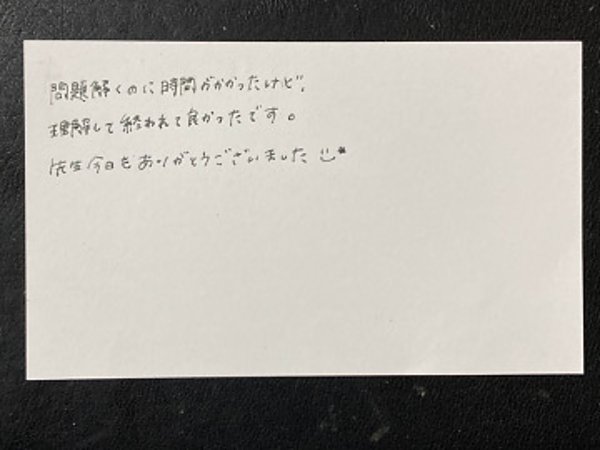 問題解くのに時間がかかったけど、
理解して終われて良かったです。
先生今日もありがとうございました